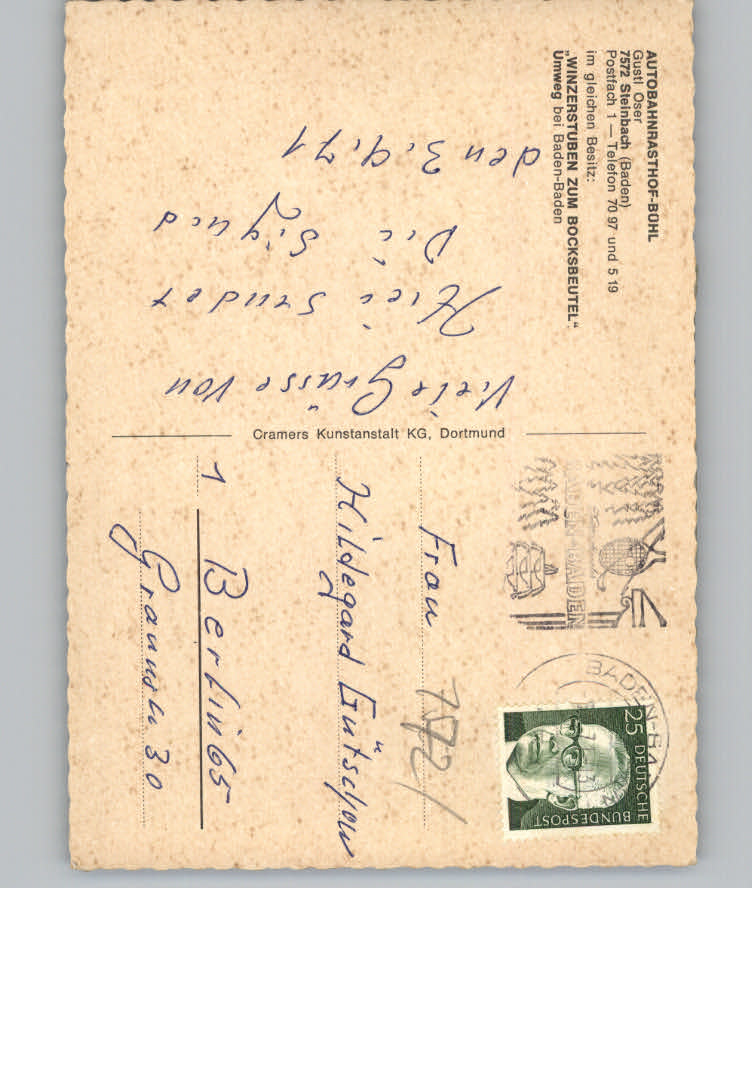 AUTOBAHNRASTHOF-BÜHL
Gustl Oser
7572 Steinbach (Baden)
Postfach 1 — Telefon 70 97 und 5 19
im gleichen Besitz:
„WINZERSTUBEN ZUM BOCKSBEUTEL“
Umweg bei Baden-Baden
den 3.9.71
Viele Grüsse von
Hier sendet
Die Sigrid
Cramers Kunstanstalt KG, Dortmund
BADEN-BADEN
BADEN-BA
25 DEUTSCHE
BUNDESPOST
Frau
Hildegard
1 Berlin 65
30